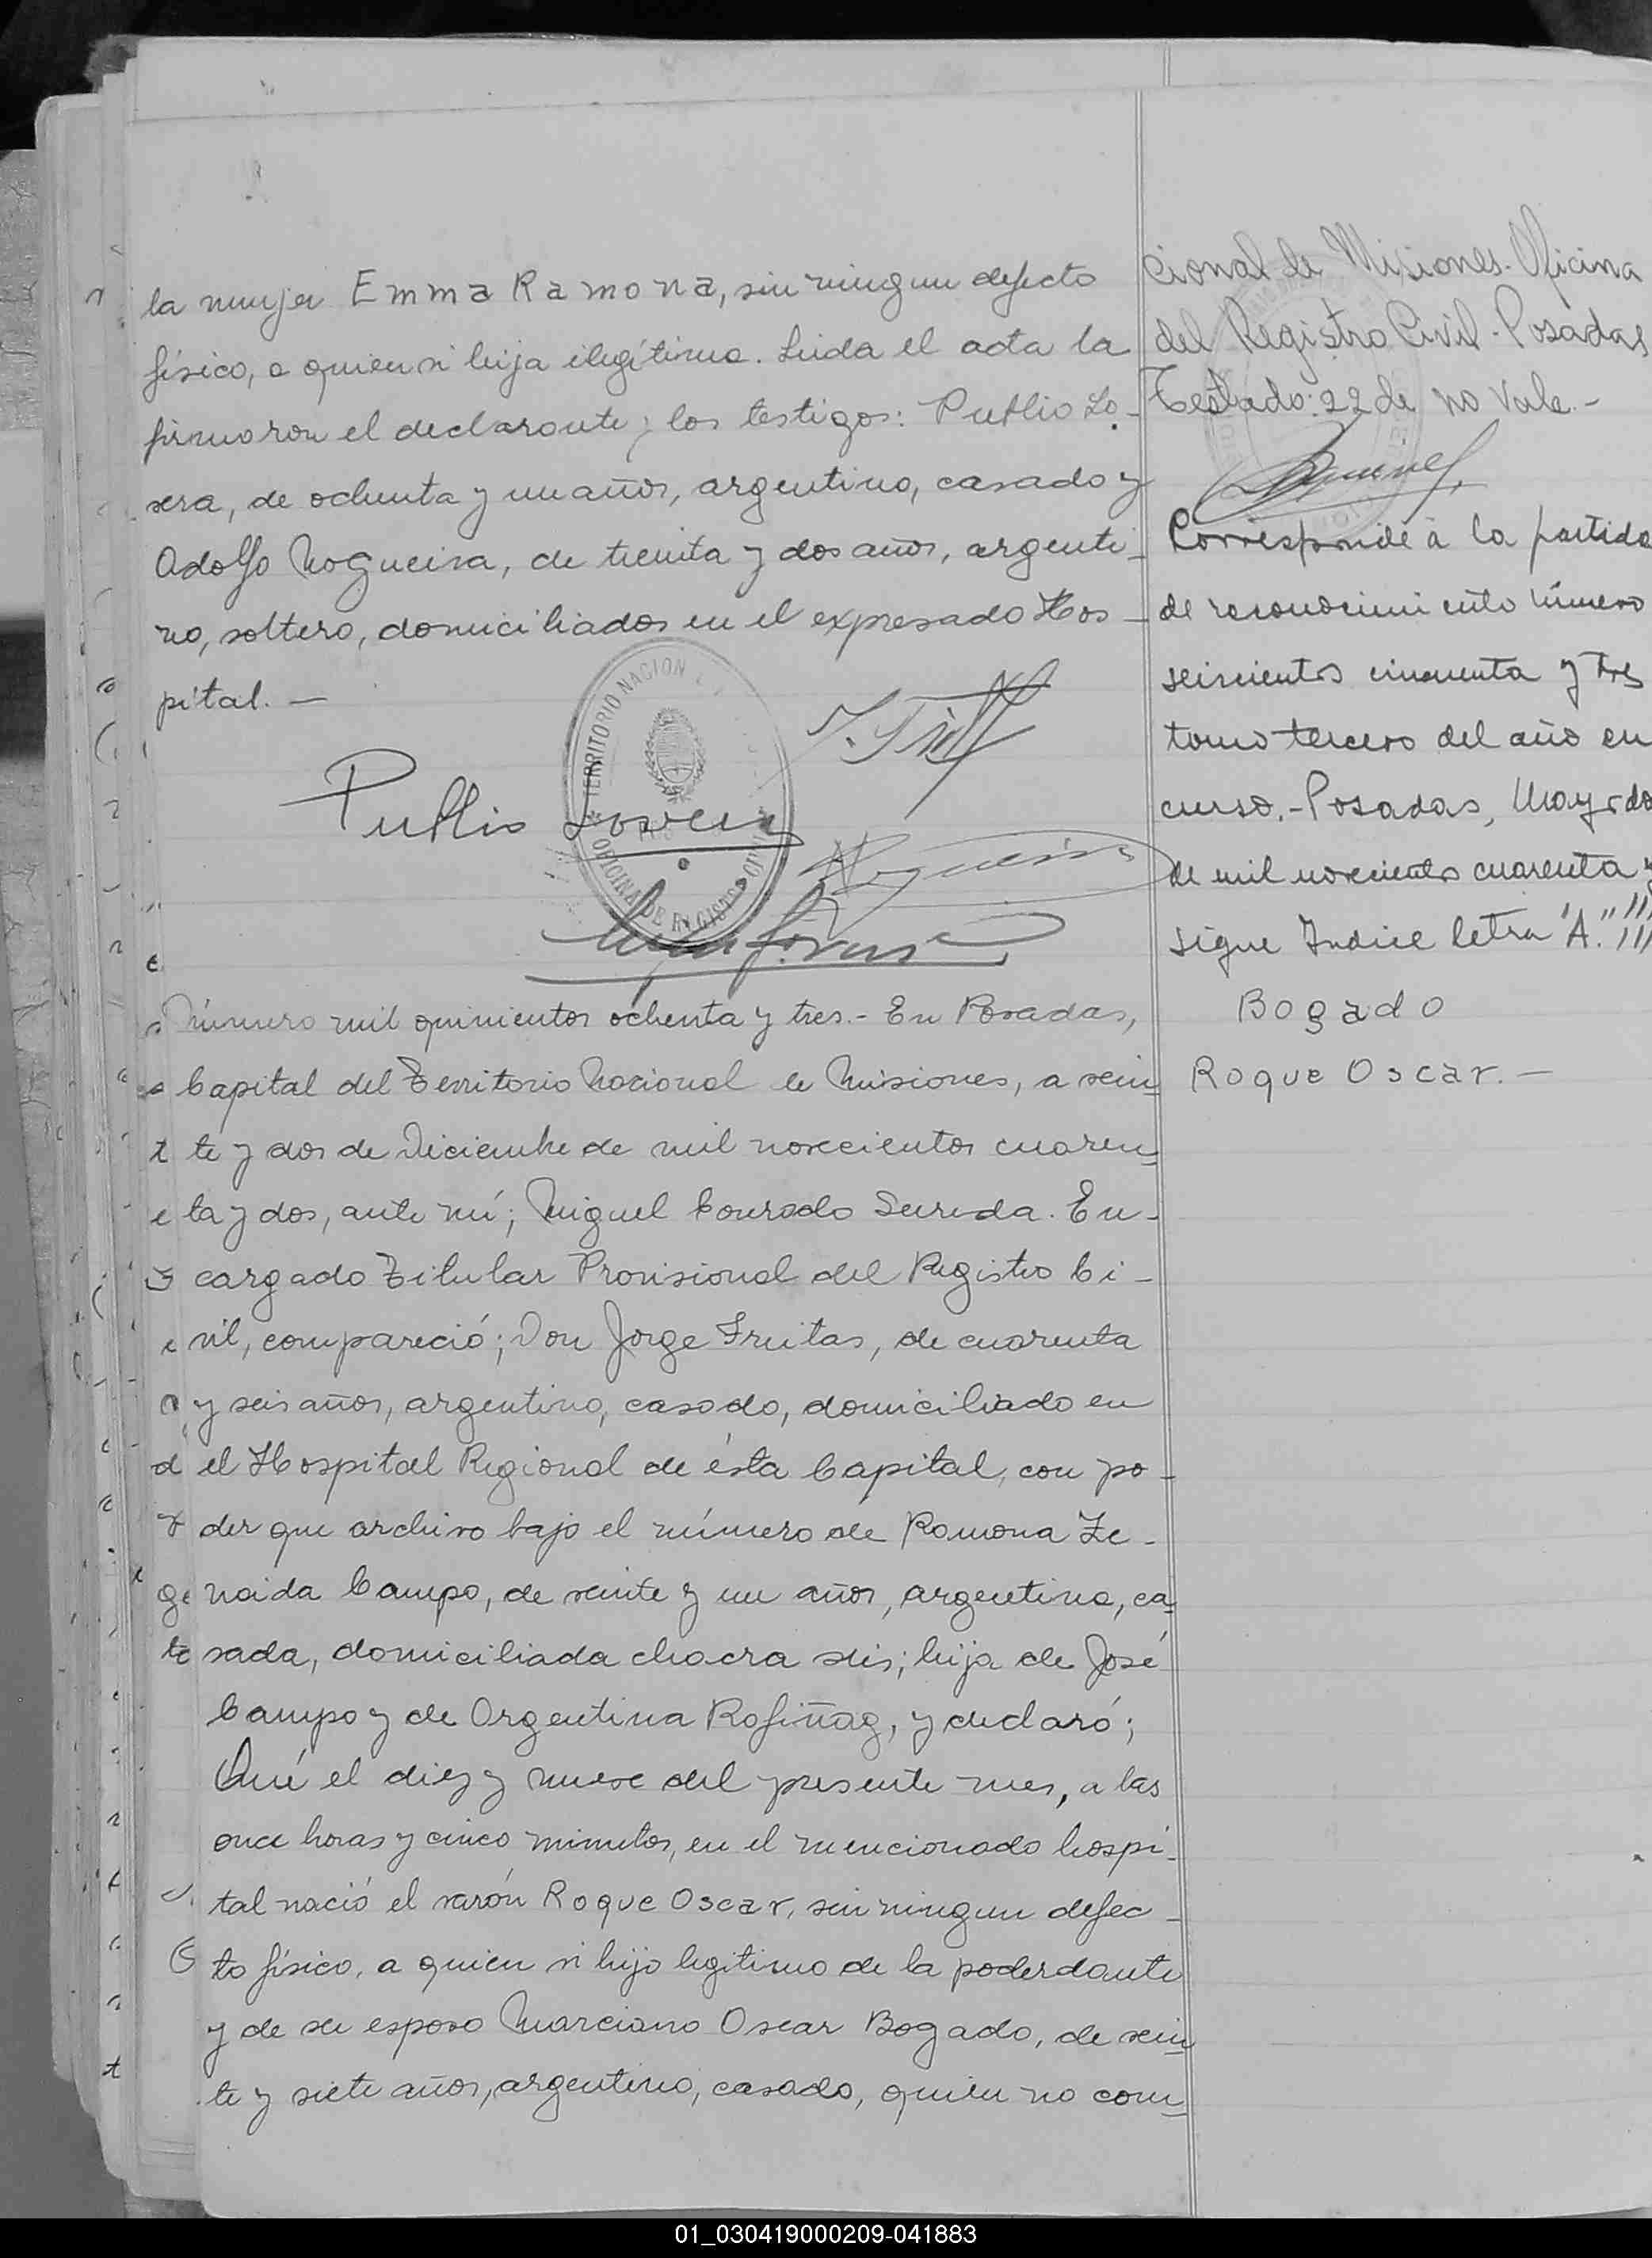 la mujer Emma Ramona, sin ningun defecto
físico, a quien si hija ilegítima. Leida el acta la
firmaron el declarante y los testigos: Publio Lo-
vera, de ochenta y un años, argentino, casado y
Adolfo Nogueira, de treinta y dos años, argenti-
no, soltero, domiciliados en el expresado Hos-
pital. —
TERRITORIO NACION
OFICINA DE REGISTRO CIVIL
Publio Lovera
Nogueira
Número mil quinientos ochenta y tres.- En Posadas,
Capital del Territorio Nacional de Misiones, a vein
te y dos de Diciembre de mil novecientos cuaren
ta y dos, ante mí; Miguel Conrado Sereda. En-
cargado Titular Provisional del Registro Ci-
vil, compareció; Don Jorge Freitas, de cuarenta
y seis años, argentino, casado, domiciliado en
el Hospital Regional de ésta Capital, con po-
der que archivo bajo el número de Ramona Ze-
naida Campo, de veinte y un años, argentina, ca
sada, domiciliada chacra seis; hija de José
Campo y de Argentina Rofiñag, y declaró;
Qué el diez y nueve del presente mes, a las
once horas y cinco minutos, en el mencionado hospi-
tal nació el varón Roque Oscar, sin ningun defec-
to físico, a quien si hijo legitimo de la poderdante
y de su esposo Marciano Oscar Bogado, de vein
te y siete años, argentino, casado, quien no com
cional de Misiones. Oficina
del Registro Civil - Posadas
Testado: 22 de no vale.-
Corresponde a la partida
de reconocimiento número
seiscientos cincuenta y tres
tomo tercero del año en
curso.- Posadas, Mayo de
de mil novecientos cuarenta y
sigue Indice letra "A."
Bogado
Roque Oscar. —
01_030419000209-041883